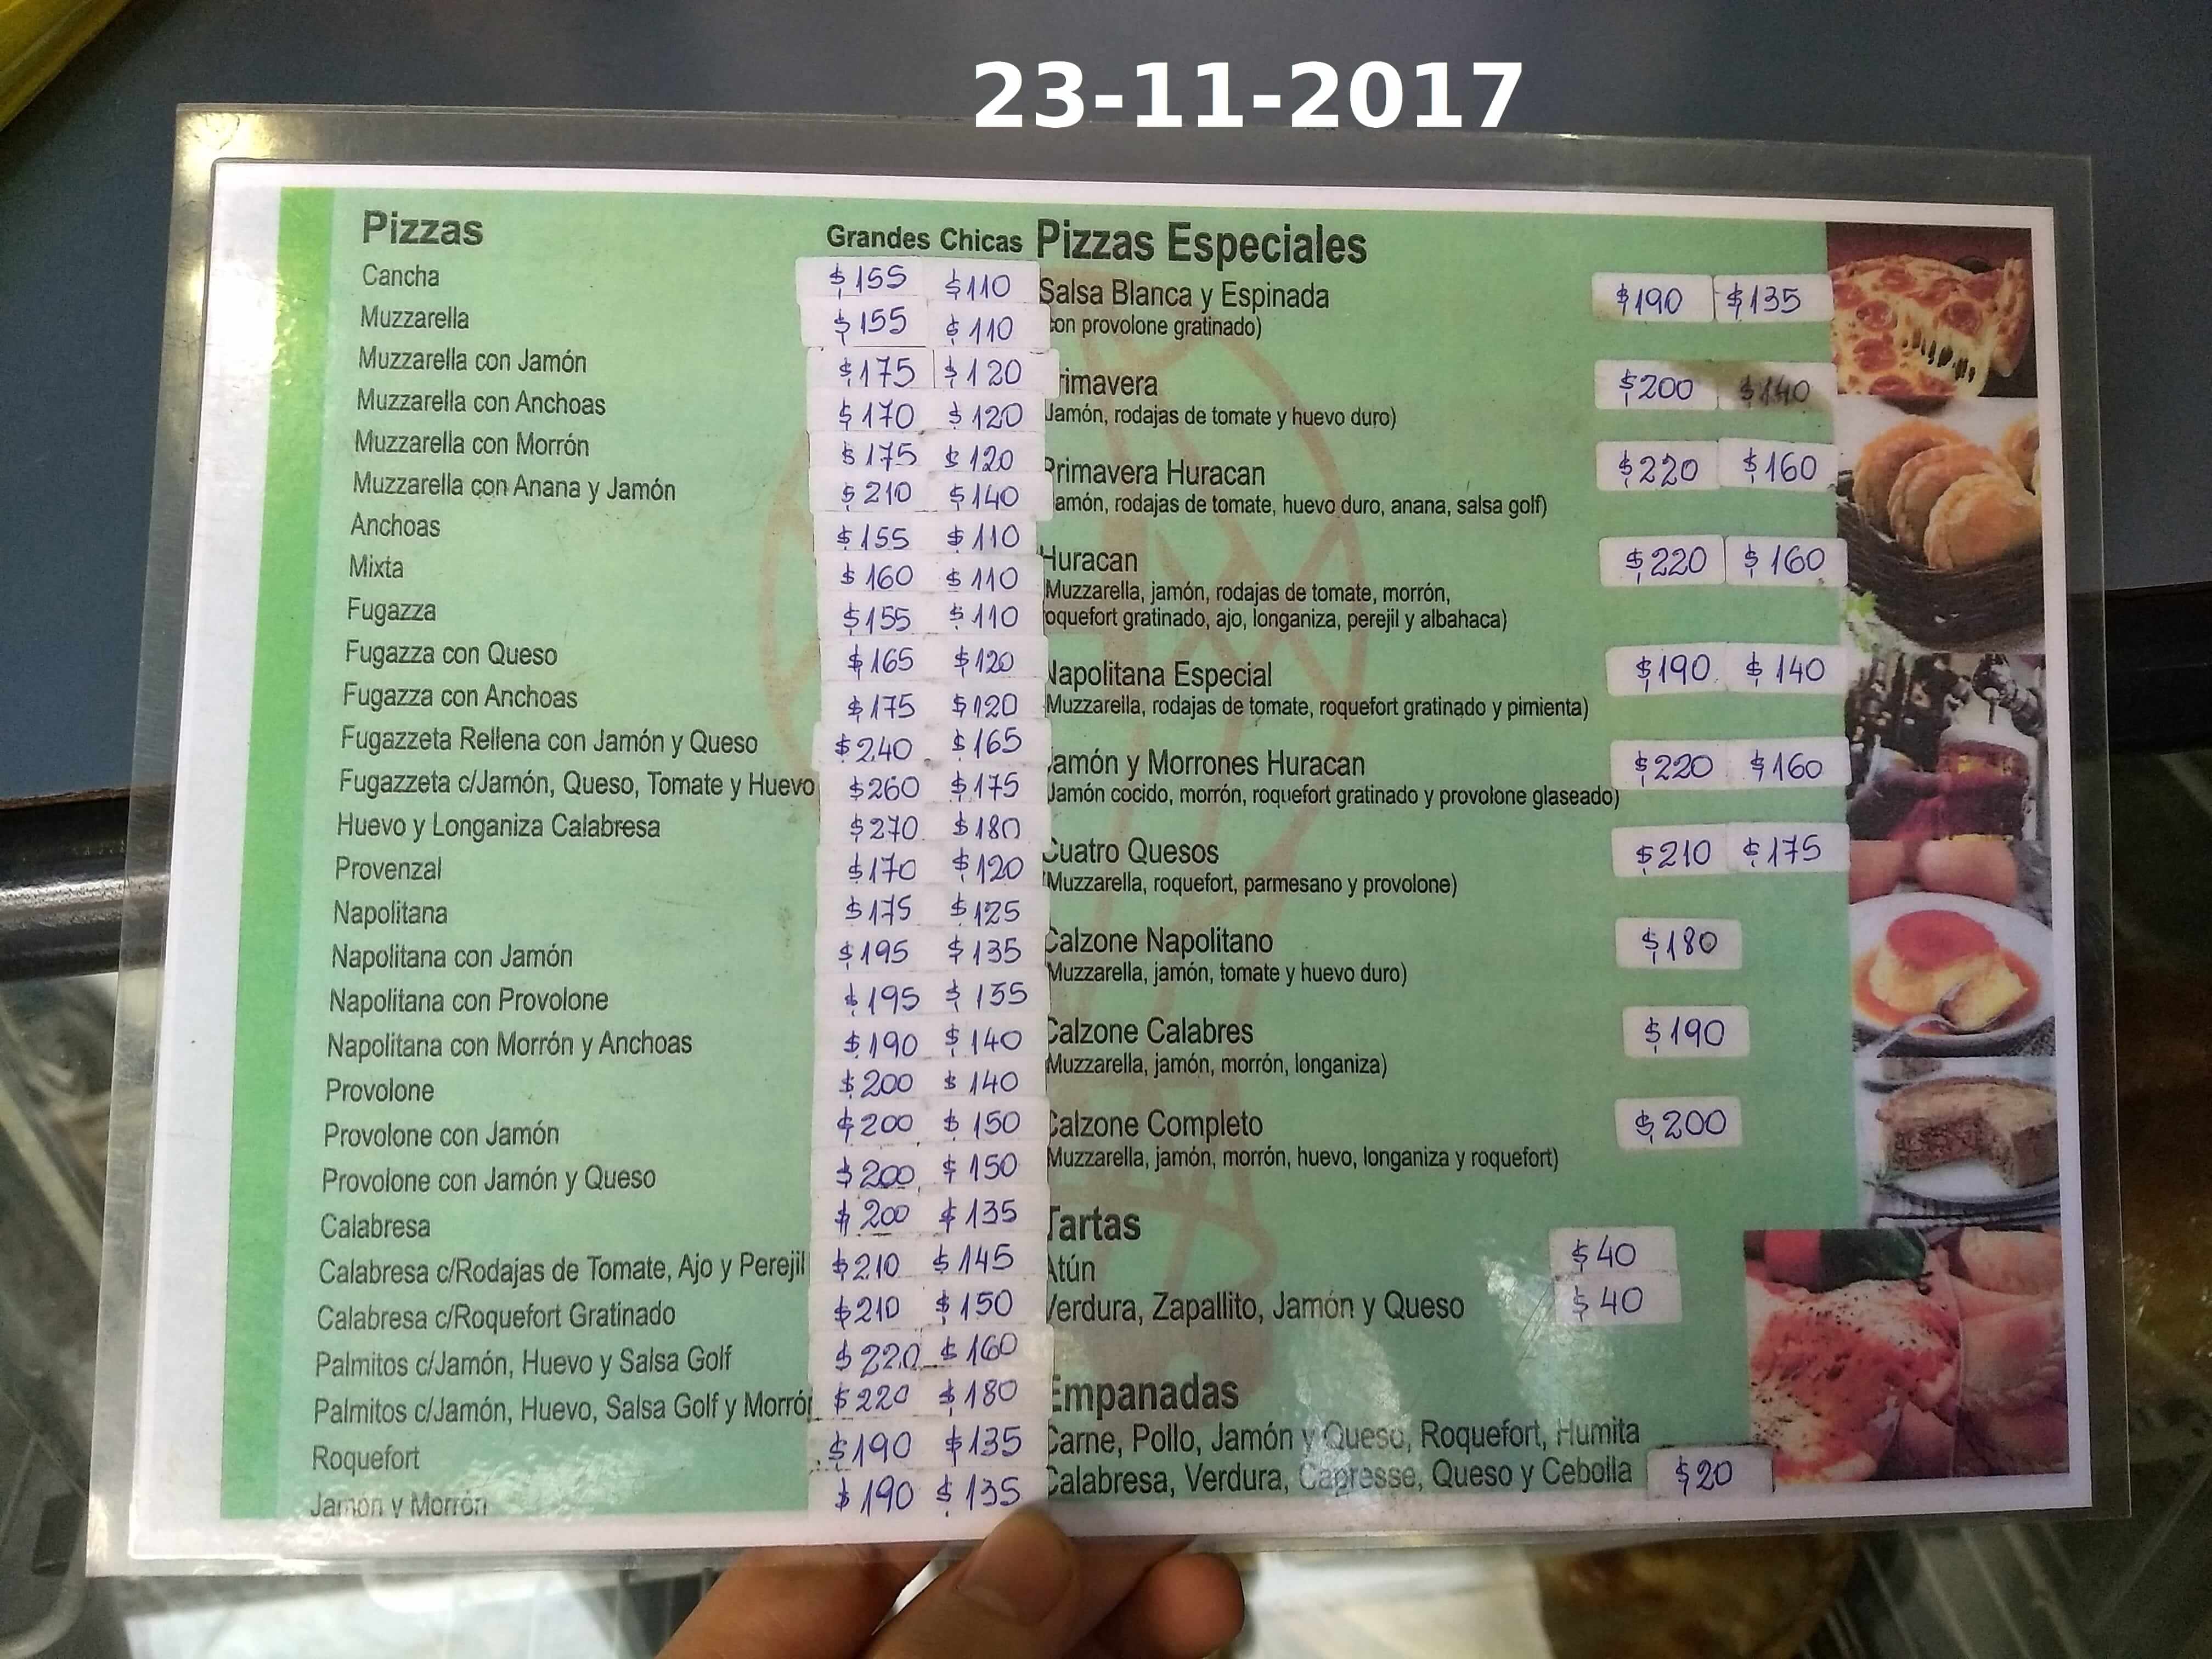 23-11-2017
Pizzas Grandes Chicas
Cancha $155 $110
Muzzarella $155 $110
Muzzarella con Jamón $175 $120
Muzzarella con Anchoas $170 $120
Muzzarella con Morrón $175 $120
Muzzarella con Anana y Jamón $210 $140
Anchoas $155 $110
Mixta $160 $110
Fugazza $155 $110
Fugazza con Queso $165 $120
Fugazza con Anchoas $175 $120
Fugazzeta Rellena con Jamón y Queso $240 $165
Fugazzeta c/Jamón, Queso, Tomate y Huevo $260 $175
Huevo y Longaniza Calabresa $270 $180
Provenzal $170 $120
Napolitana $175 $125
Napolitana con Jamón $195 $135
Napolitana con Provolone $195 $135
Napolitana con Morrón y Anchoas $190 $140
Provolone $200 $140
Provolone con Jamón $200 $150
Provolone con Jamón y Queso $200 $150
Calabresa $200 $135
Calabresa c/Rodajas de Tomate, Ajo y Perejil $210 $145
Calabresa c/Roquefort Gratinado $210 $150
Palmitos c/Jamón, Huevo y Salsa Golf $220 $160
Palmitos c/Jamón, Huevo, Salsa Golf y Morrón $220 $180
Roquefort $190 $135
Jamón y Morrón $190 $135
Pizzas Especiales
Salsa Blanca y Espinada $190 $135
con provolone gratinado)
Primavera $200 $140
Jamón, rodajas de tomate y huevo duro)
Primavera Huracan $220 $160
Jamón, rodajas de tomate, huevo duro, anana, salsa golf)
Huracan $220 $160
(Muzzarella, jamón, rodajas de tomate, morrón,
roquefort gratinado, ajo, longaniza, perejil y albahaca)
Napolitana Especial $190 $140
(Muzzarella, rodajas de tomate, roquefort gratinado y pimienta)
Jamón y Morrones Huracan $220 $160
(Jamón cocido, morrón, roquefort gratinado y provolone glaseado)
Cuatro Quesos $210 $175
(Muzzarella, roquefort, parmesano y provolone)
Calzone Napolitano $180
(Muzzarella, jamón, tomate y huevo duro)
Calzone Calabres $190
(Muzzarella, jamón, morrón, longaniza)
Calzone Completo $200
(Muzzarella, jamón, morrón, huevo, longaniza y roquefort)
Tartas
Atún $40
Verdura, Zapallito, Jamón y Queso $40
Empanadas
Carne, Pollo, Jamón y Queso, Roquefort, Humita
Calabresa, Verdura, Capresse, Queso y Cebolla $20